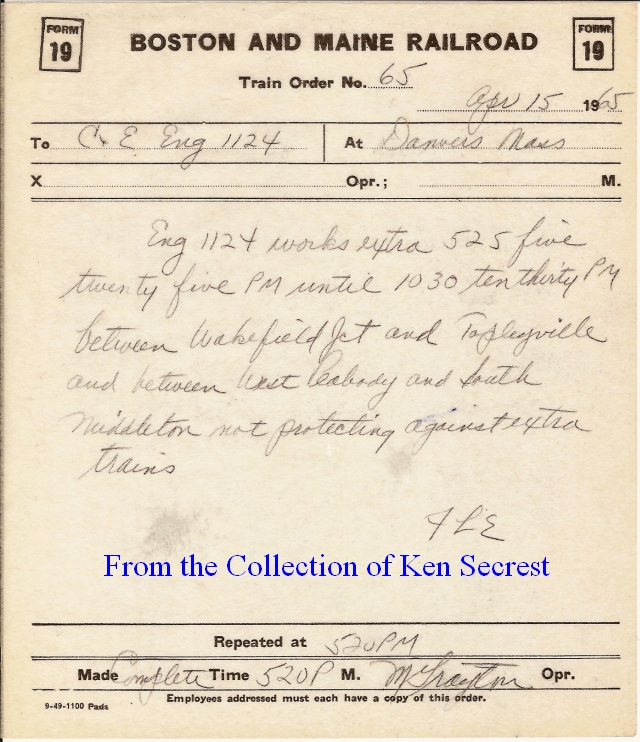 FORM 19
BOSTON AND MAINE RAILROAD
FORM 19
Train Order No. 65
Apr 15 1965
To C & E Eng 1124 At Danvers Mass
X Opr.; M.
Eng 1124 works extra 525 five
twenty five PM until 1030 ten thirty PM
between Wakefield Jct and Tapleyville
and between West Peabody and South
Middleton not protecting against extra
trains
FLE
From the Collection of Ken Secrest
Repeated at 520PM
Made Complete Time 520P M. Opr.
Employees addressed must each have a copy of this order.
9-49-1100 Pads